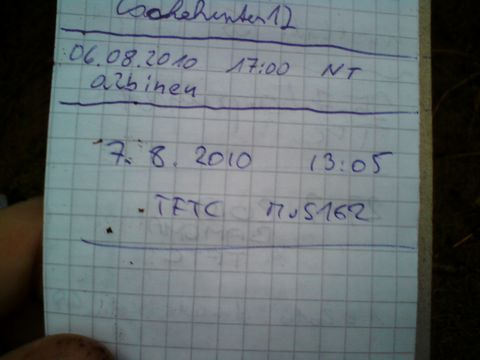 Cachehunter12
06.08.2010 17:00 NT
azbinen
7. 8. 2010 13:05
TFTC M.S162